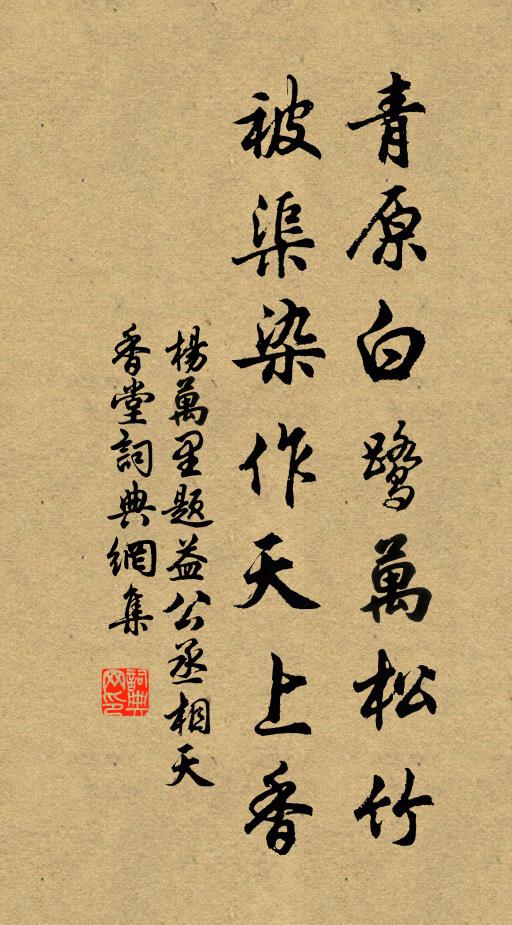 青原白鷺萬松竹
被渠染作天上香
楊萬里題益公丞相天
香堂詞典網集
詞典网印